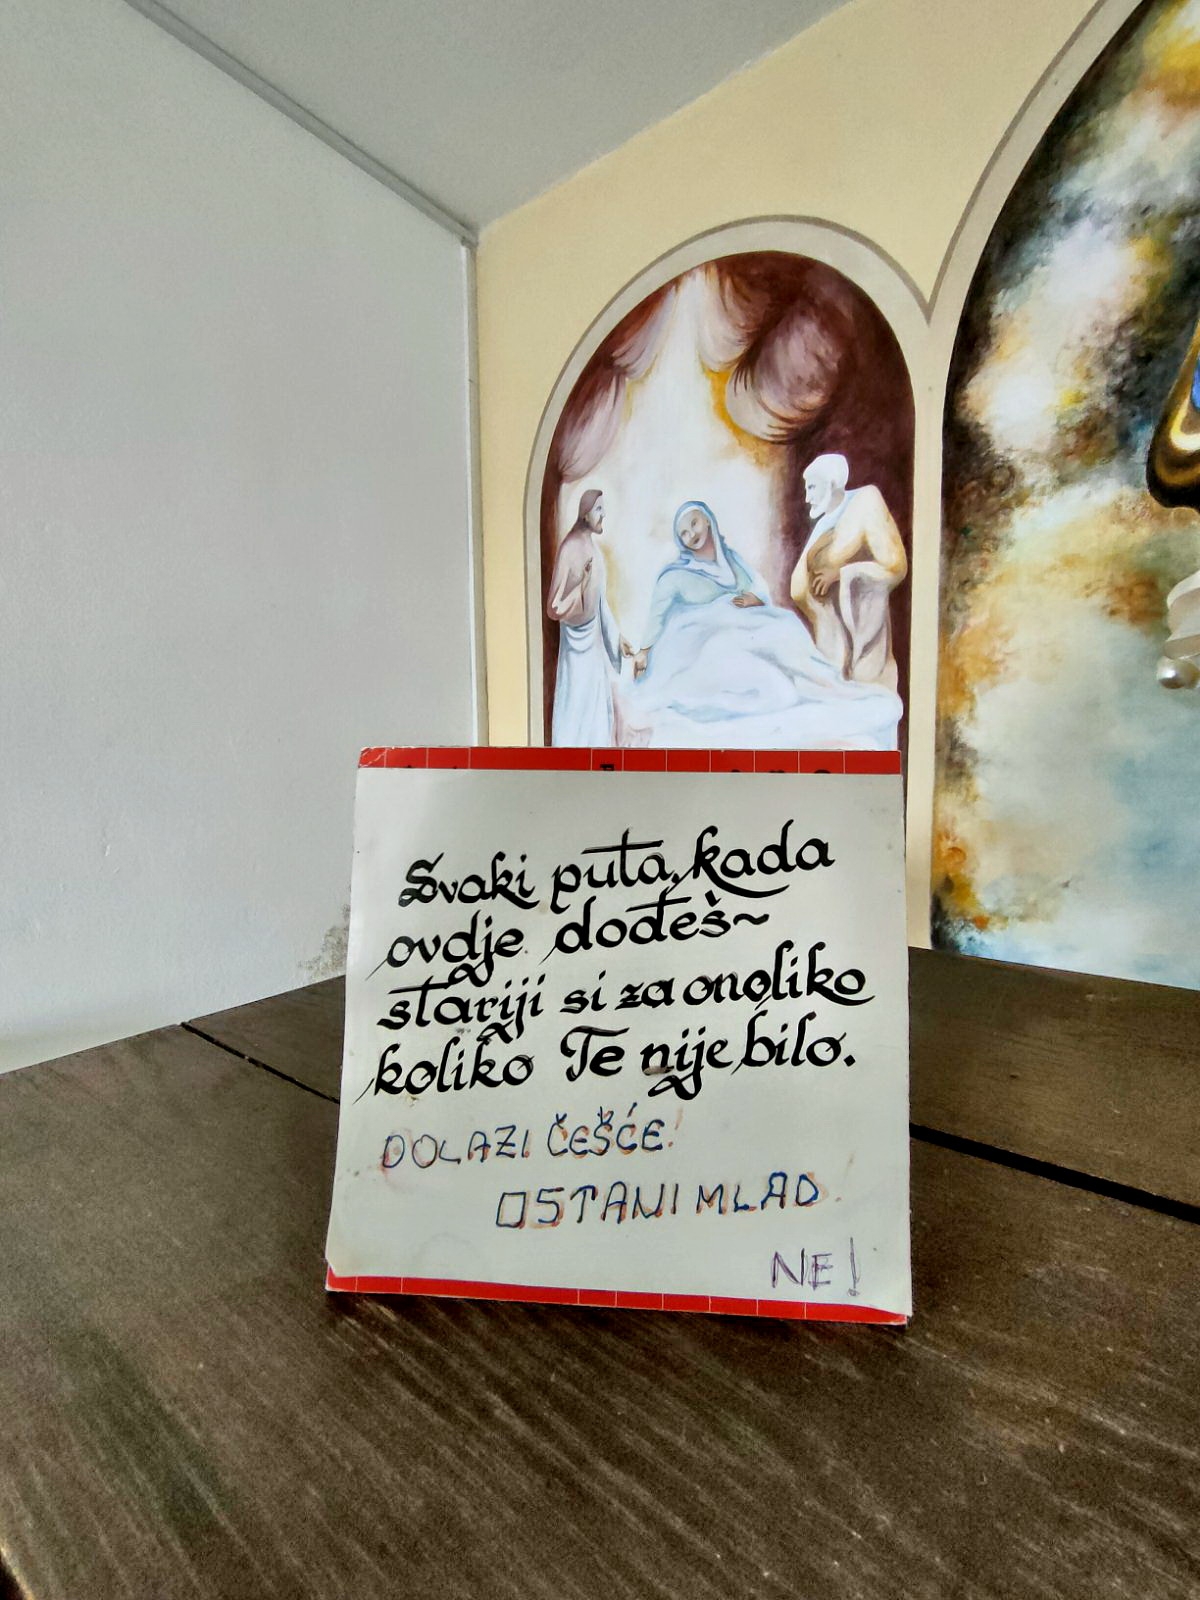 Svaki puta, kada
ovdje dođeš~
stariji si za onoliko
koliko Te nije bilo.
DOLAZI ČEŠĆE!
OSTANI MLAD!
NE!